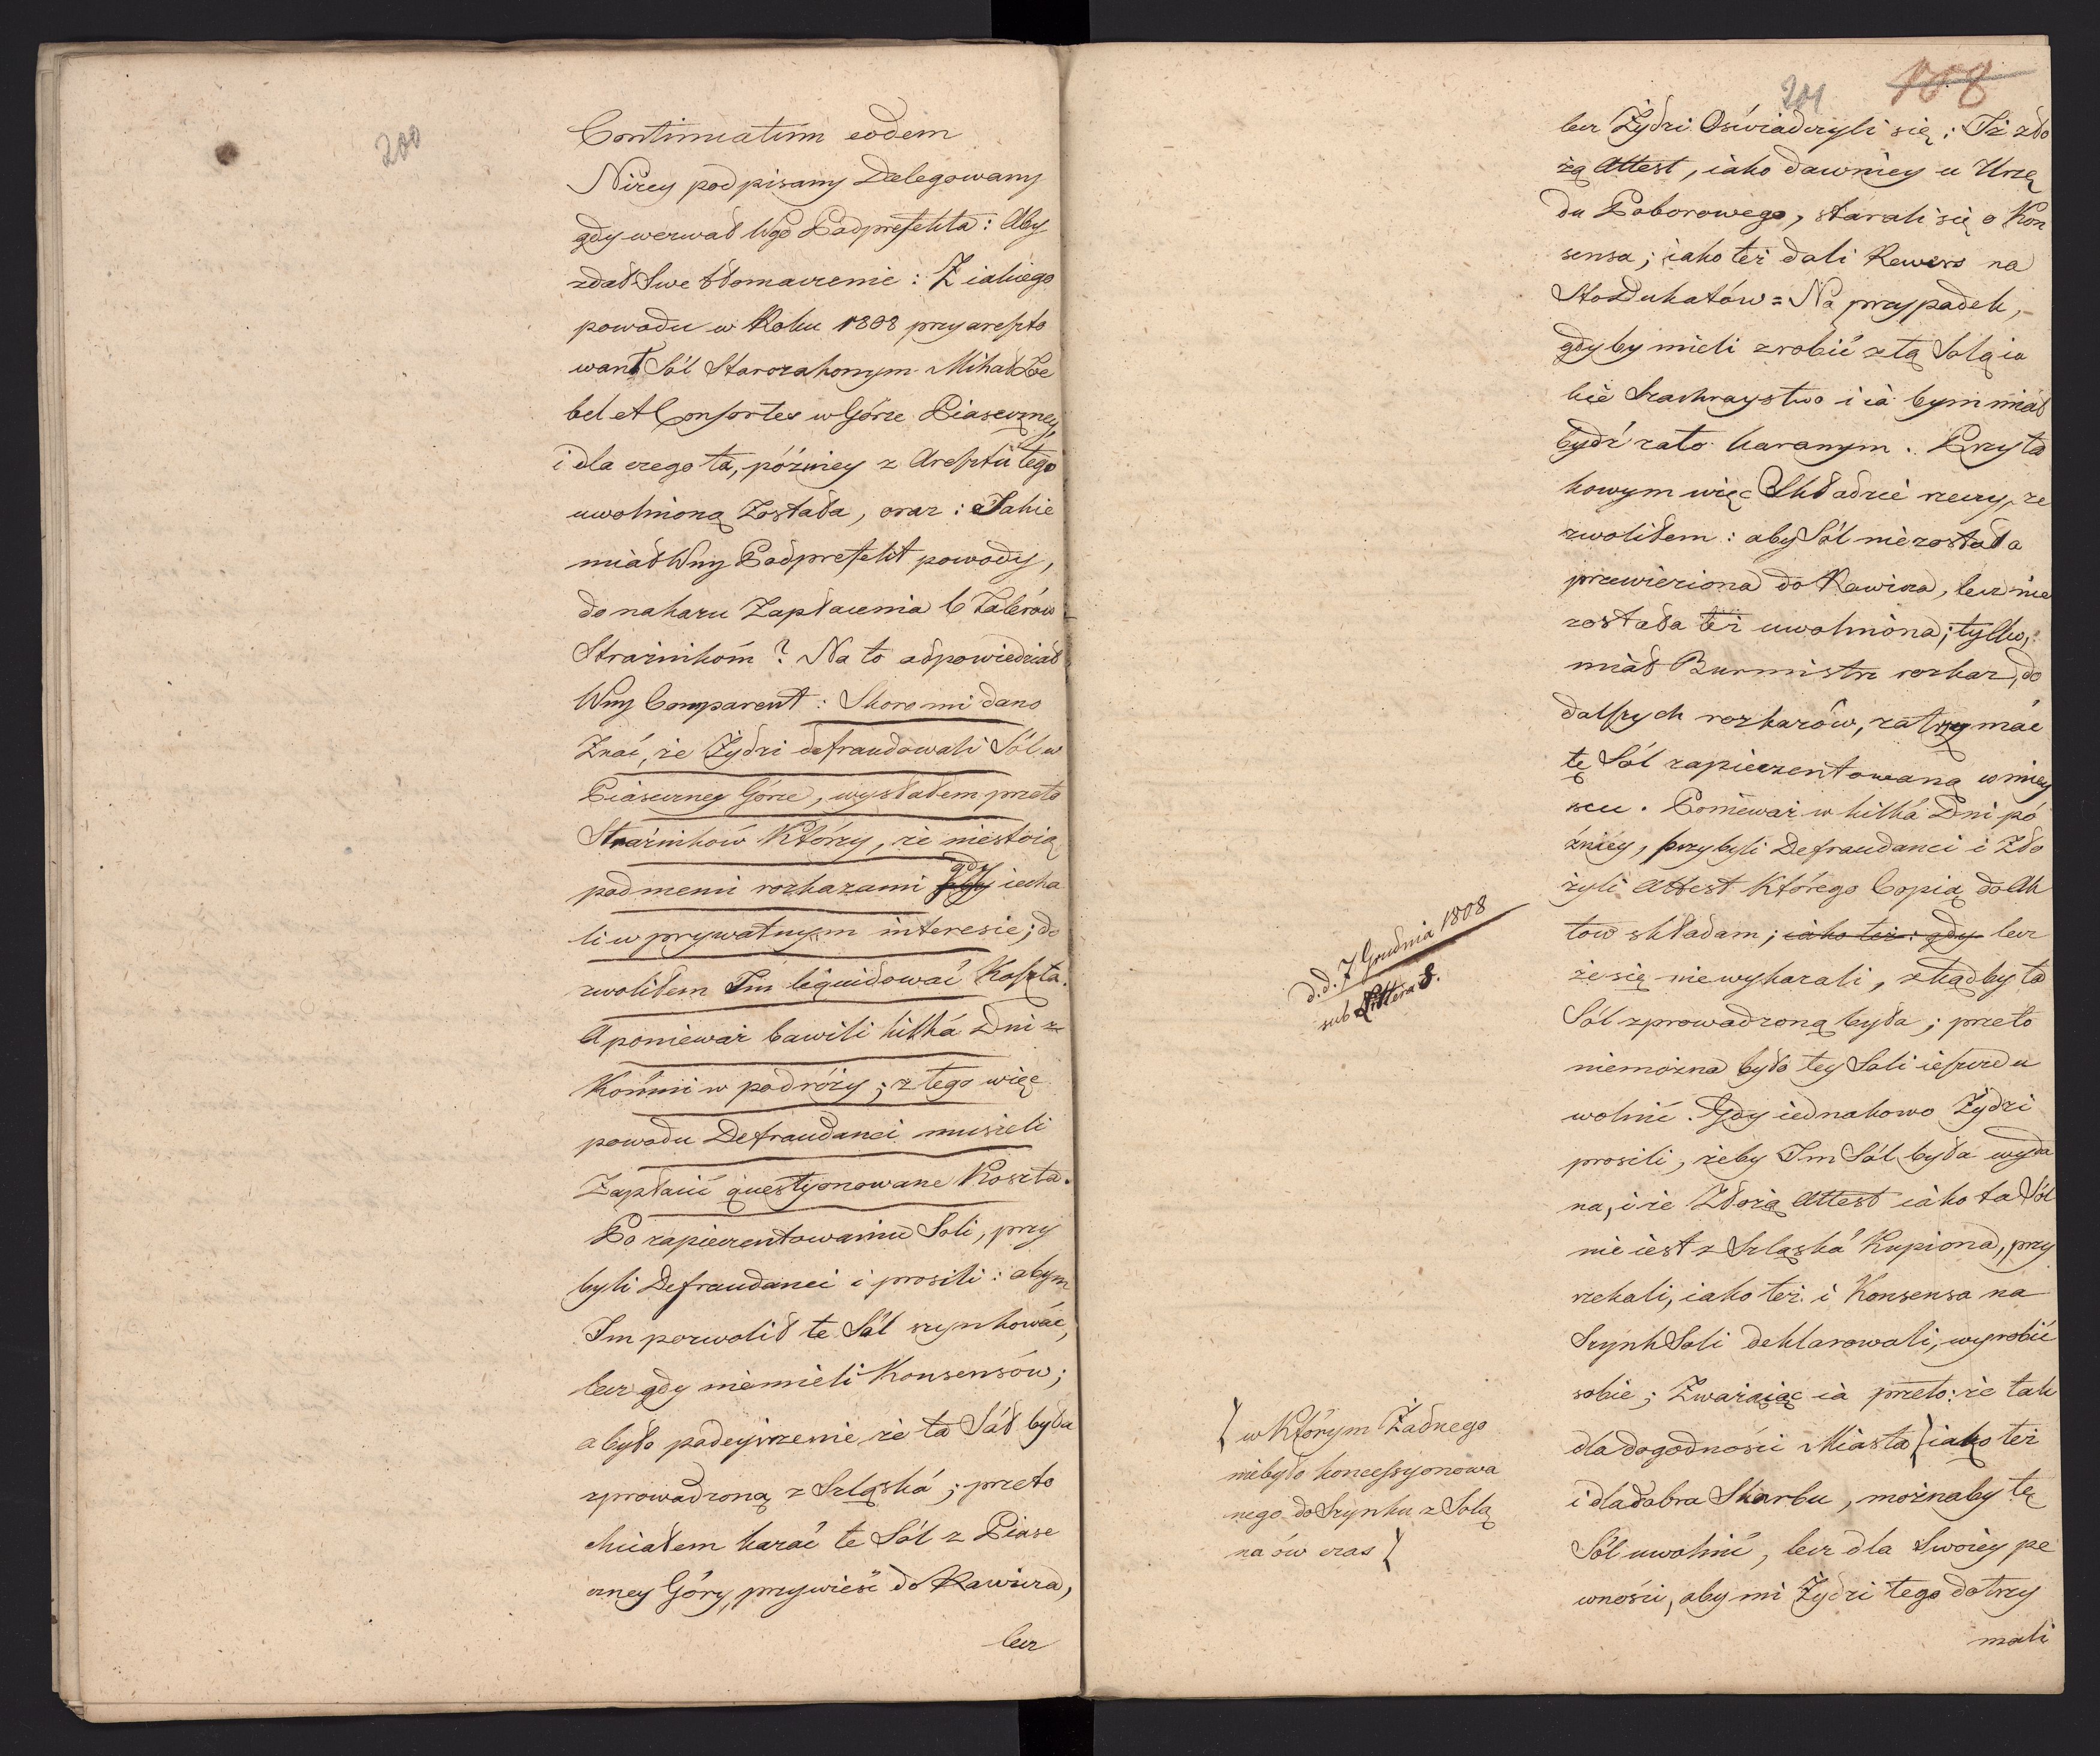 200
Continuatum eodem
Niżey podpisany Delegowany
gdy werwał Wgo Podprefekta: Aby
zdał Swe tłomaczenie: Z iakiego
powodu w Roku 1808 przyareszto
wanł Sól Starozakonym Mihał Loe
bel et Consortes w Górze Piaseczney,
i dla czego ta, późniey z Aresztu tego
uwolnioną Została, oraz: Jakie
miał Wny Podprefekt powody,
do nakazu Zapłacenia 6 Talerów
Strażnikóm? Na to odpowiedział
Wny Comparent: Skoro mi dano
Znać, że Żydzi defraudowali Sól w
Piaseczney Górze, wysłałem przeto
Strażników Którzy, że niestoią
pod memi rozkazami gdy iecha
li w prywatnym interesie; do
zwoliłem Im liquidować Koszta.
A ponieważ bawili kilká Dni z
Końmi w podróży; z tego więc
powodu Defraudanci musieli
Zapłacić questyonowane Koszta.
Po zapieczentowaniu Soli, przy
byli Defraudanci i prosili: abym
Im pozwolił te Sól szynkować,
lecz gdy niemieli Konsensów;
a było podeyrzenie że ta Sól była
zprowadzoną z Szląská; przeto
chciałem kazać te Sól z Piase
czney Góry, przywieść do Rawicza,
lecz
201
188
lecz Żydzi Oświadczyli się: Iż zło
żą Attest, iako dawniey u Urzę
du Poborowego, starali się o Kon
sensa; iako też dali Rewers na
Sto Dukatów = Na przypadek,
gdyby mieli zrobić z tą Solą ia
kie Szachraystwo i ia bym miał
bydź zato karanym. Przy ta
kowym więc Składzie rzeczy, ze
zwoliłem: aby Sól niezostała
przewieziona do Rawicza, lecz nie
została też uwolniona; tylko,
miał Burmistrz rozkaz, do
dalszych rozkazów, zatrzymać
tę Sól zapieczentowaną w miey
scu. Ponieważ w kilká Dni pó
źniey, przybyli Defraudanci i Zło
żyli Attest Którego Copią do Ak
tow składam; iako też: gdy lecz
że się nie wykazali, zkąd by ta
Sól zprowadzoną była; przeto
niemożna było tey Soli ieszcze u
wolnić. Gdy iednakowo Żydzi
prosili, żeby Im Sól była wyda
na, i że Złożą Attest iako ta Sól
nie iest z Szląská Kupiona, przy
rzekali, iako też i Konsensa na
Szynk Soli deklarowali, wyrobić
sobie; Zważaiąc ia przeto: że tak
dla dogodności Miasta iako też
i dla dobra Skarbu, możnaby tę
Sól uwolnić, lecz dla Swoiey pe
wności, aby mi Żydzi tego dotrzy
mali
d.d. 7 Grudnia 1808
sub Littera 8.
w Którym Żadnego
niebyło koncessyonowa
nego do Szynku z Solą
na ów czas